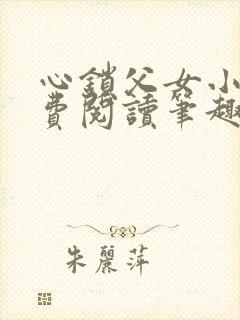 心鎖父女小
費閱讀筆趣
朱麗萍